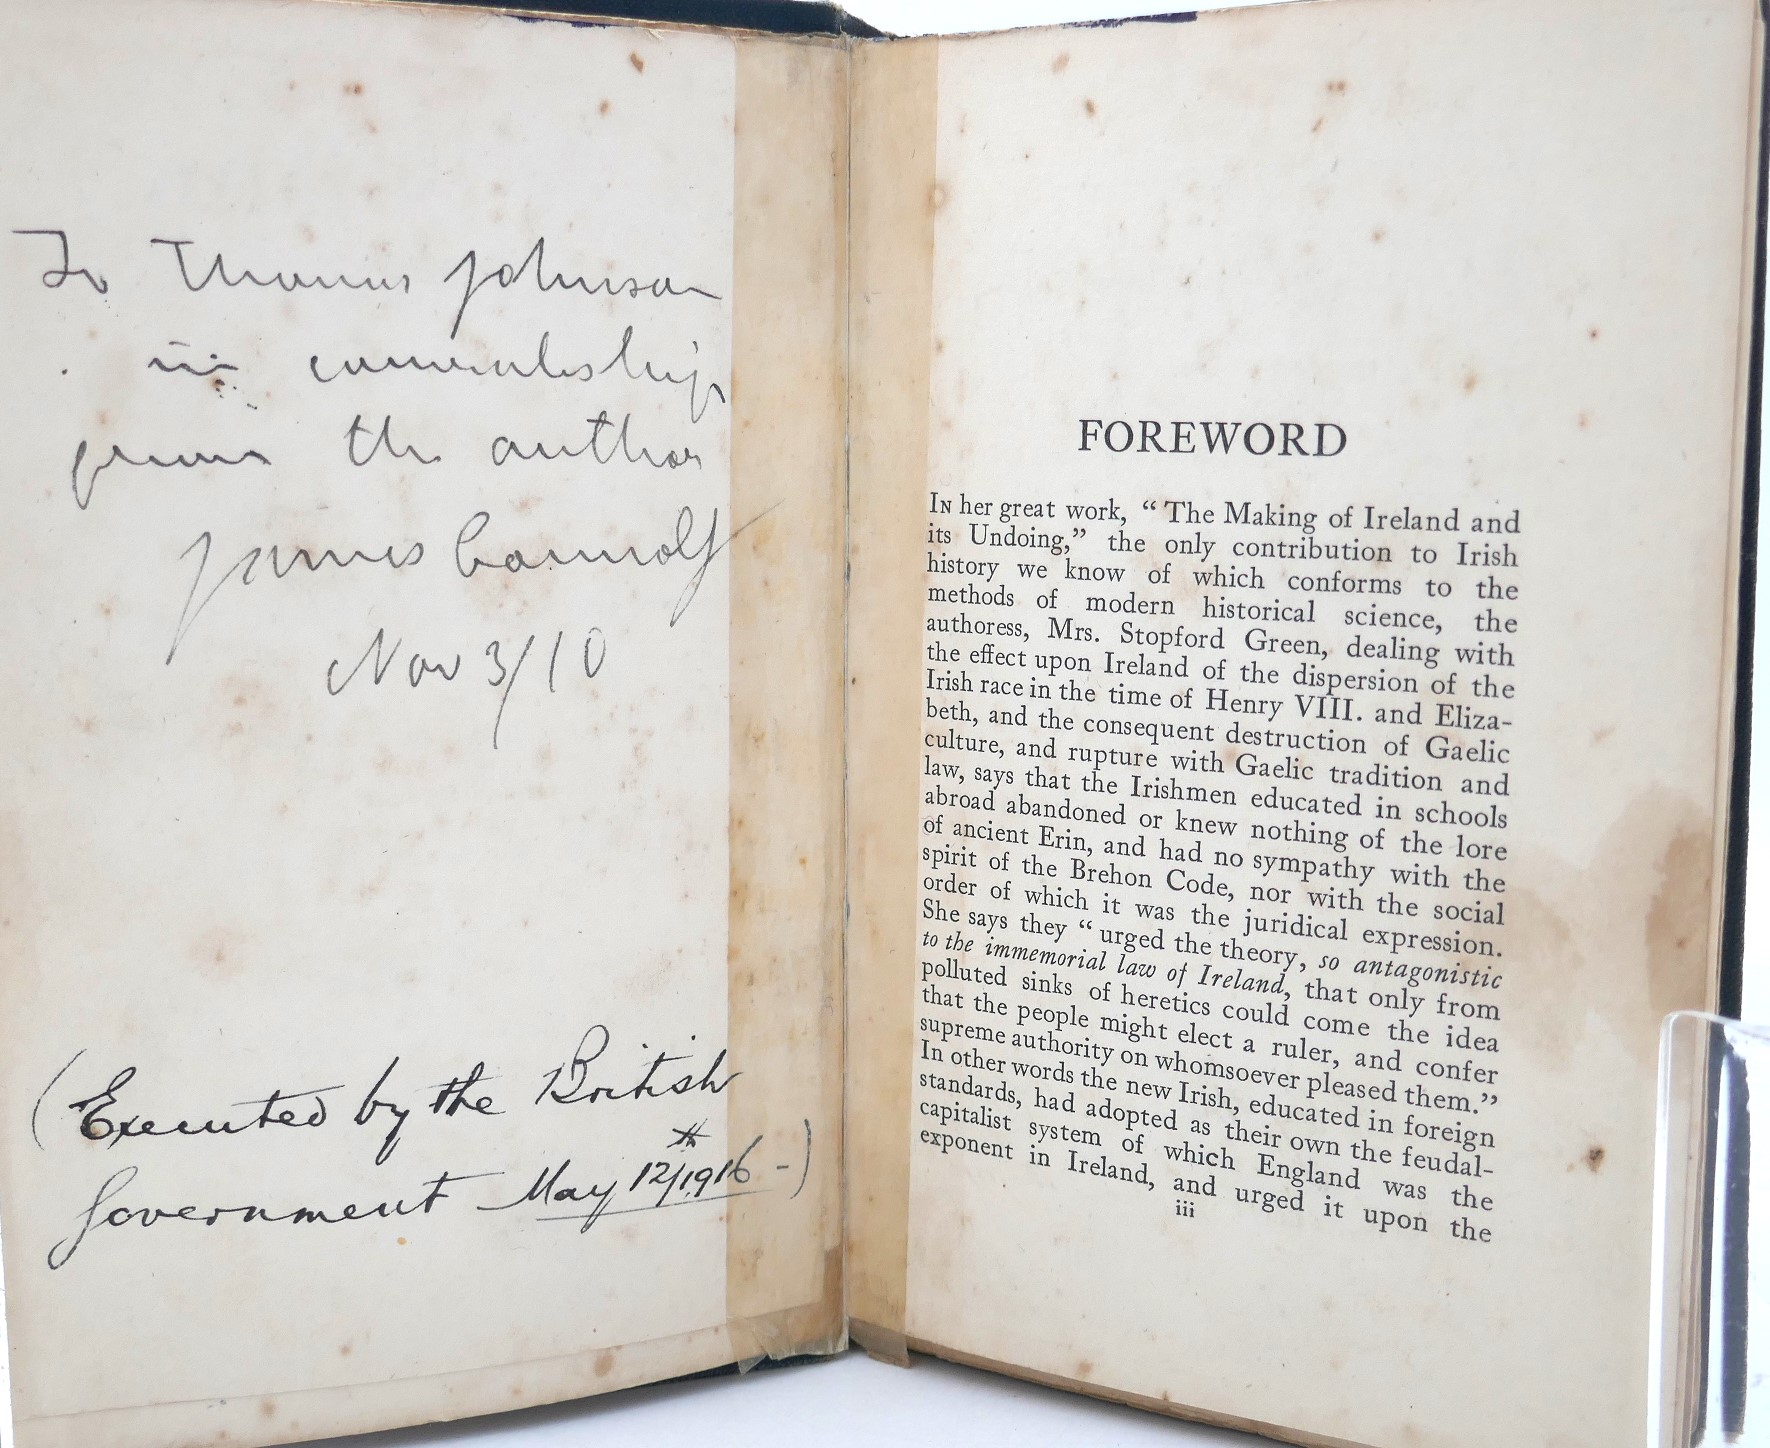 To Thomas Johnson
in comradeship
from the author
James Connolly
Nov 3/10
(Executed by the British
Government May 12th/1916 -)
FOREWORD
In her great work, “The Making of Ireland and
its Undoing,” the only contribution to Irish
history we know of which conforms to the
methods of modern historical science, the
authoress, Mrs. Stopford Green, dealing with
the effect upon Ireland of the dispersion of the
Irish race in the time of Henry VIII. and Eliza-
beth, and the consequent destruction of Gaelic
culture, and rupture with Gaelic tradition and
law, says that the Irishmen educated in schools
abroad abandoned or knew nothing of the lore
of ancient Erin, and had no sympathy with the
spirit of the Brehon Code, nor with the social
order of which it was the juridical expression.
She says they “urged the theory, so antagonistic
to the immemorial law of Ireland, that only from
polluted sinks of heretics could come the idea
that the people might elect a ruler, and confer
supreme authority on whomsoever pleased them.”
In other words the new Irish, educated in foreign
standards, had adopted as their own the feudal-
capitalist system of which England was the
exponent in Ireland, and urged it upon the
iii